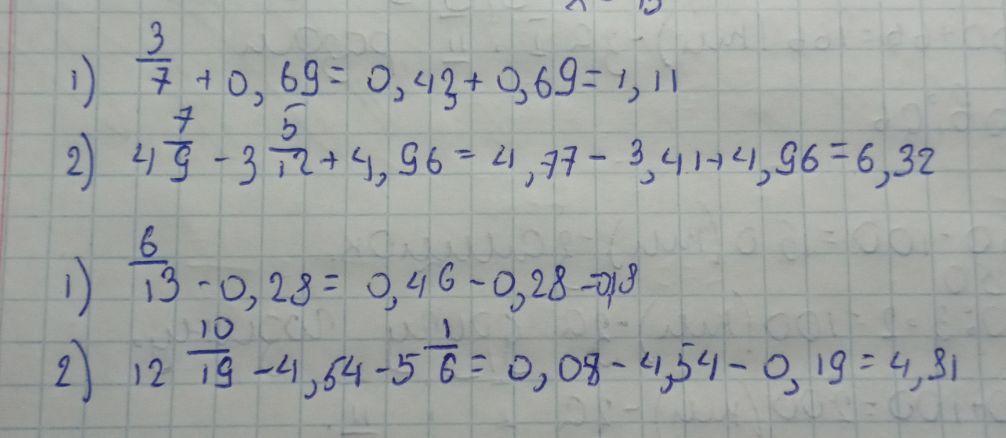 1) 3/7 + 0,69 = 0,43 + 0,69 = 1,11
2) 4 7/9 - 3 5/12 + 4,96 = 4,77 - 3,41 + 4,96 = 6,32
1) 6/13 - 0,28 = 0,46 - 0,28 = 0,18
2) 12 10/19 - 4,54 - 5 1/6 = 0,08 - 4,54 - 0,19 = 4,31